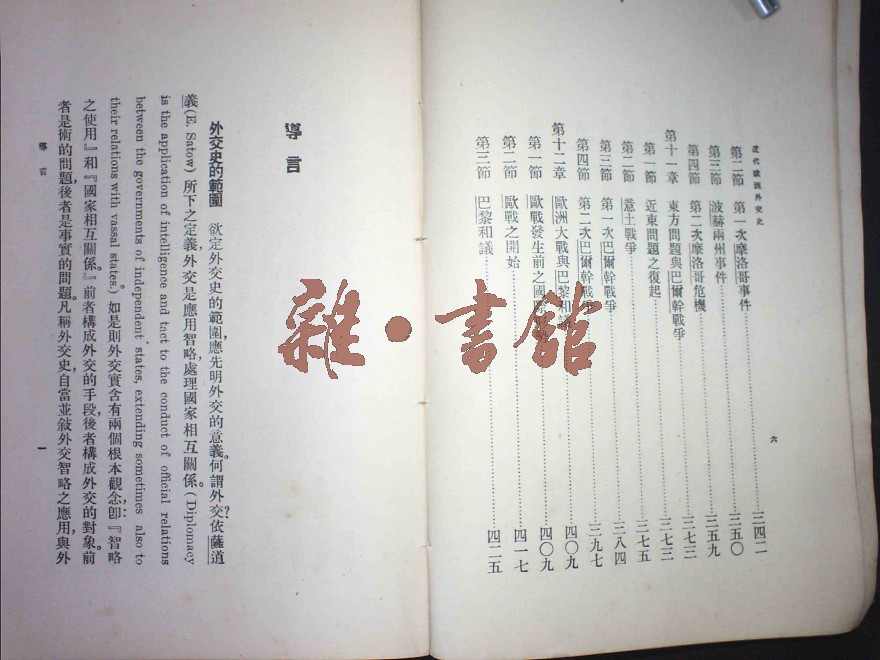 近代歐洲外交史
第二節 第一次摩洛哥事件 三四二
第三節 波赫兩州事件 三五〇
第四節 第二次摩洛哥危機 三五九
第十一章 東方問題與巴爾幹戰爭 三七三
第一節 近東問題之復起 三七三
第二節 意土戰爭 三七五
第三節 第一次巴爾幹戰爭 三八四
第四節 第二次巴爾幹戰 三九七
第十二章 歐洲大戰與巴黎和 四〇九
第一節 歐戰發生前之國 四〇九
第二節 歐戰之開始 四一七
第三節 巴黎和議 四二五
六
雜・書館
導言
外交史的範圍 欲定外交史的範圍,應先明外交的意義。何謂外交?依薩道
義(E. Satow)所下之定義,外交是應用智略,處理國家相互關係。(Diplomacy
is the application of intelligence and tact to the conduct of official relations
between the governments of independent states, extending sometimes also to
their relations with vassal states.)如是則外交實含有兩個根本觀念,卽:『智略
之使用』和『國家相互關係。』前者構成外交的手段,後者構成外交的對象。前
者是術的問題,後者是事實的問題。凡稱外交史,自當並敍外交智略之應用,與外
導言
一